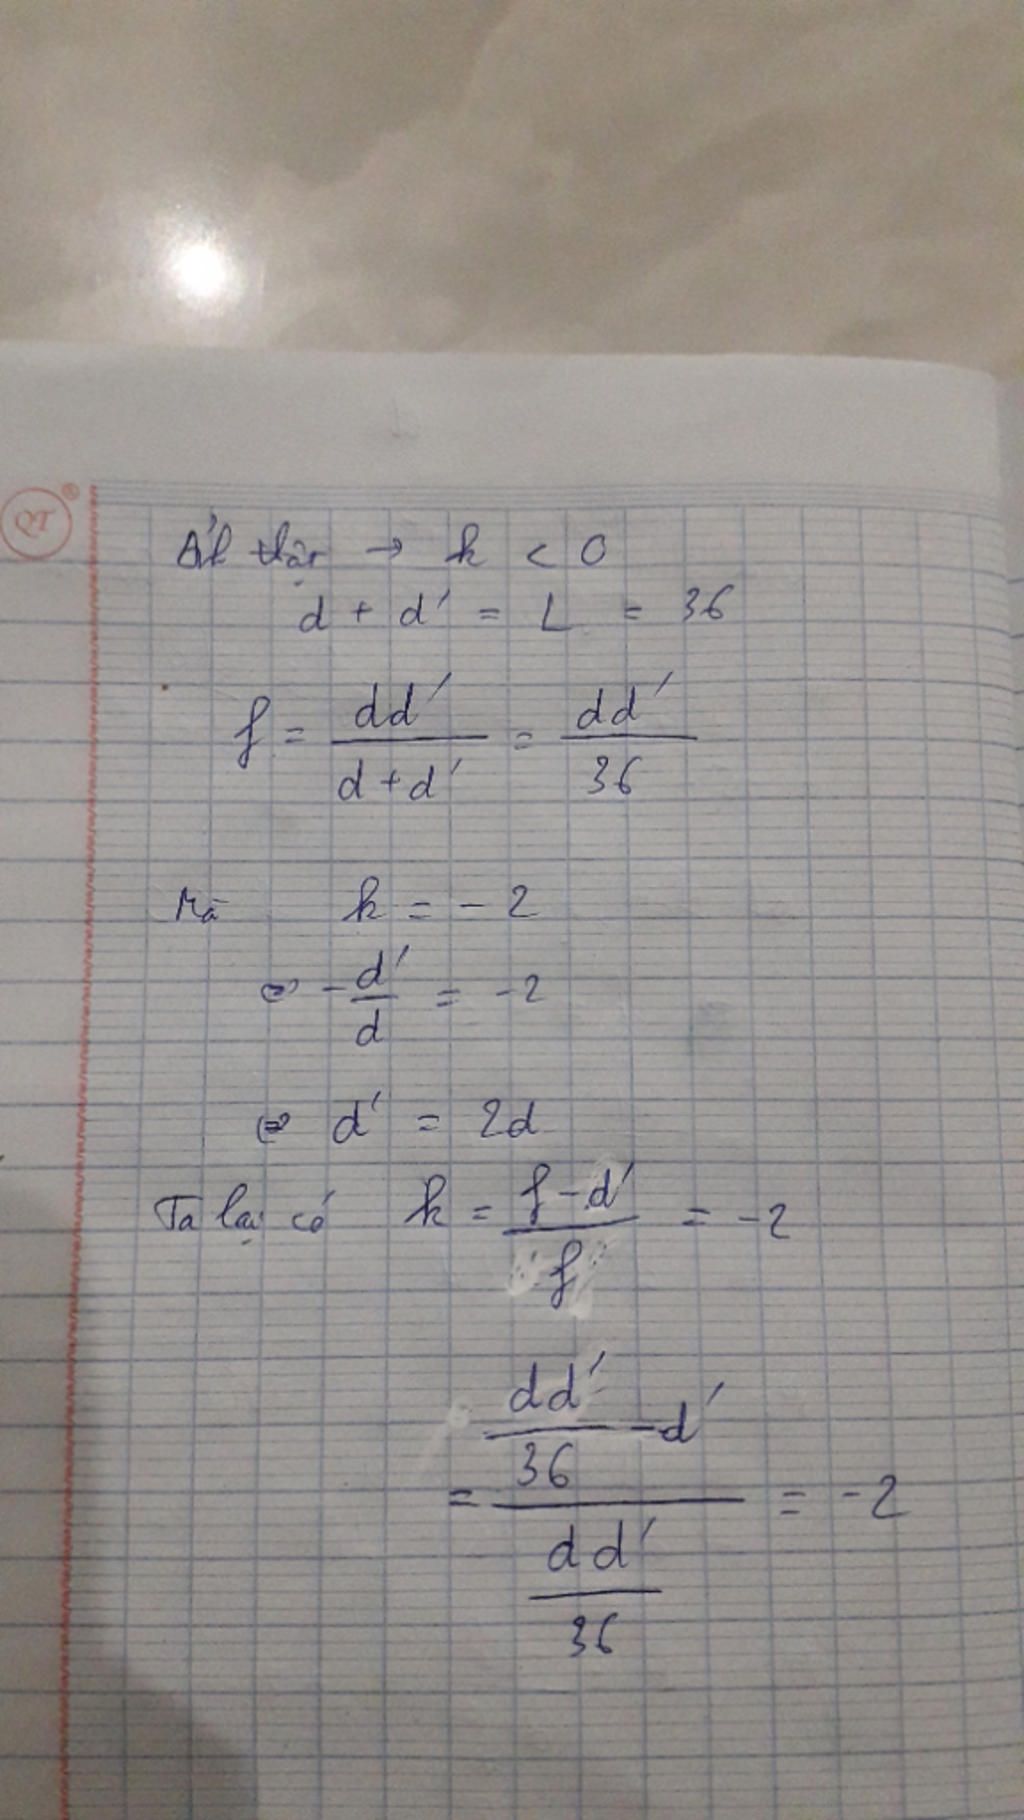 QT ®
Ảh thật → k < 0
d + d' = L = 36
f = dd' / (d + d') = dd' / 36
Mà k = -2
⇔ -d' / d = -2
⇔ d' = 2d
Ta lại có k = (f - d') / f = -2
= (dd' / 36 - d') / (dd' / 36) = -2